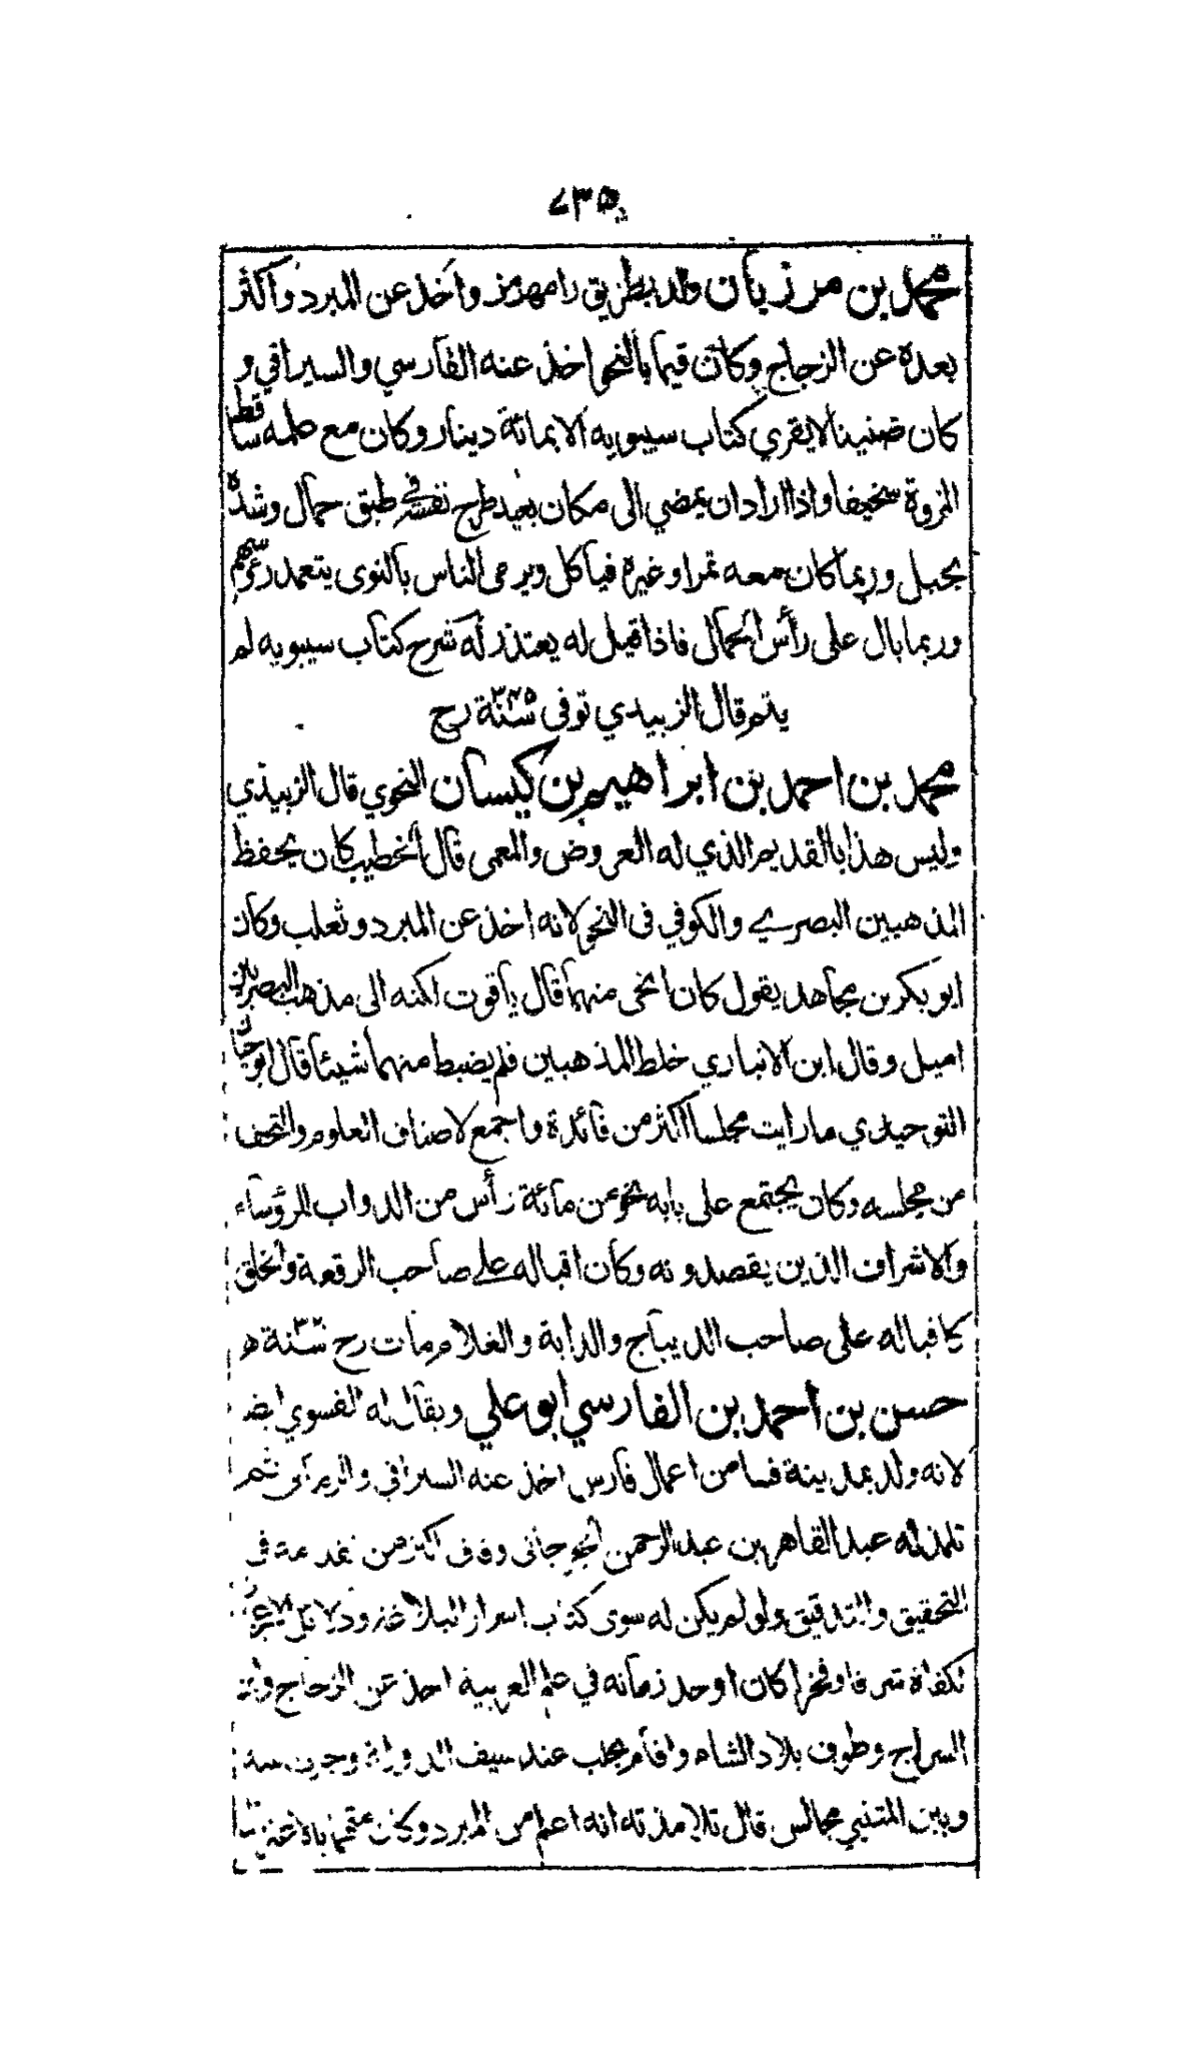 ٧٣٥
محمد بن مرزبان ولد بطريق رامهرمز واخذ عن المبرد واكثر
بعده عن الزجاج وكان قيما بالنحو اخذ عنه الفارسي والسيرافي و
كان ضنينا لايقري كتاب سيبويه الا بمائة دينار وكان مع علمه ساقط
المروة سخيفا واذا اراد ان يمضي الى مكان بعيد طرح نفسه في طبق حمال وشده
بحبل وربما كان معه تمرا وغيره فياكل ويرمى الناس بالنوى يتعمد رؤسهم
وربما بال على رأس الحمال فاذا قيل له يعتذر له شرح كتاب سيبويه لم
يتم قال الزبيدي توفى سنة ٣٤٥ رح
محمد بن احمد بن ابراهيم بن كيسان النحوي قال الزبيدي
وليس هذا بالقديم الذي له العروض والمعمى قال الخطيب كان يحفظ
المذهبين البصري والكوفي فى النحو لانه اخذ عن المبرد وثعلب وكان
ابو بكر بن مجاهد يقول كان انحى منهما قال ياقوت لكنه الى مذهب البصريين
اميل وقال ابن الانباري خلط المذهبين فلم يضبط منهما شيئا قال ابو حيان
التوحيدي ما رايت مجلسا اكثر من فائدة واجمع لاصناف العلوم والتحف
من مجلسه وكان يجتمع على بابه نحو من مائة رأس من الدواب للرؤساء
والاشراف الذين يقصدونه وكان اقباله على صاحب الرقعة والخلق
كاقباله على صاحب الديباج والدابة والغلام مات رح سنة ه
حسن بن احمد بن الفارسي ابو علي ويقال له الفسوي ايضا
لانه ولد بمدينة فسا من اعمال فارس اخذ عنه السيرافي ثم
تلمذ له عبد القاهر بن عبد الرحمن الجرجانى وفاق اكثر من تقدمه فى
التحقيق والتدقيق ولو لم يكن له سوى كتاب اسرار البلاغة ودلائل الاعجاز
لكفاه شرفا وفخرا كان اوحد زمانه في علم العربية اخذ عن الزجاج وابن
السراج وطوف بلاد الشام واقام بحلب عند سيف الدولة وجرت بينه
وبين المتنبي مجالس قال تلامذته انه اعلم من المبرد وكان متهما بالاعتزال